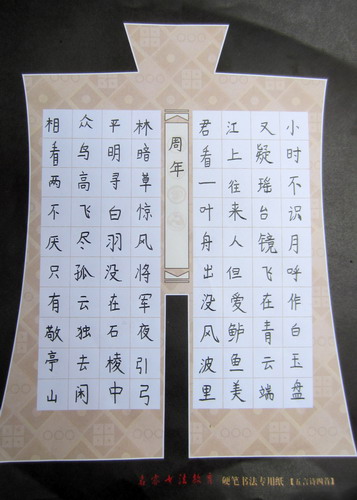 小时不识月呼作白玉盘
又疑瑶台镜飞在青云端
江上往来人但爱鲈鱼美
君看一叶舟出没风波里
周年
林暗草惊风将军夜引弓
平明寻白羽没在石棱中
众鸟高飞尽孤云独去闲
相看两不厌只有敬亭山
书法教育 硬笔书法专用纸【五言诗四首】